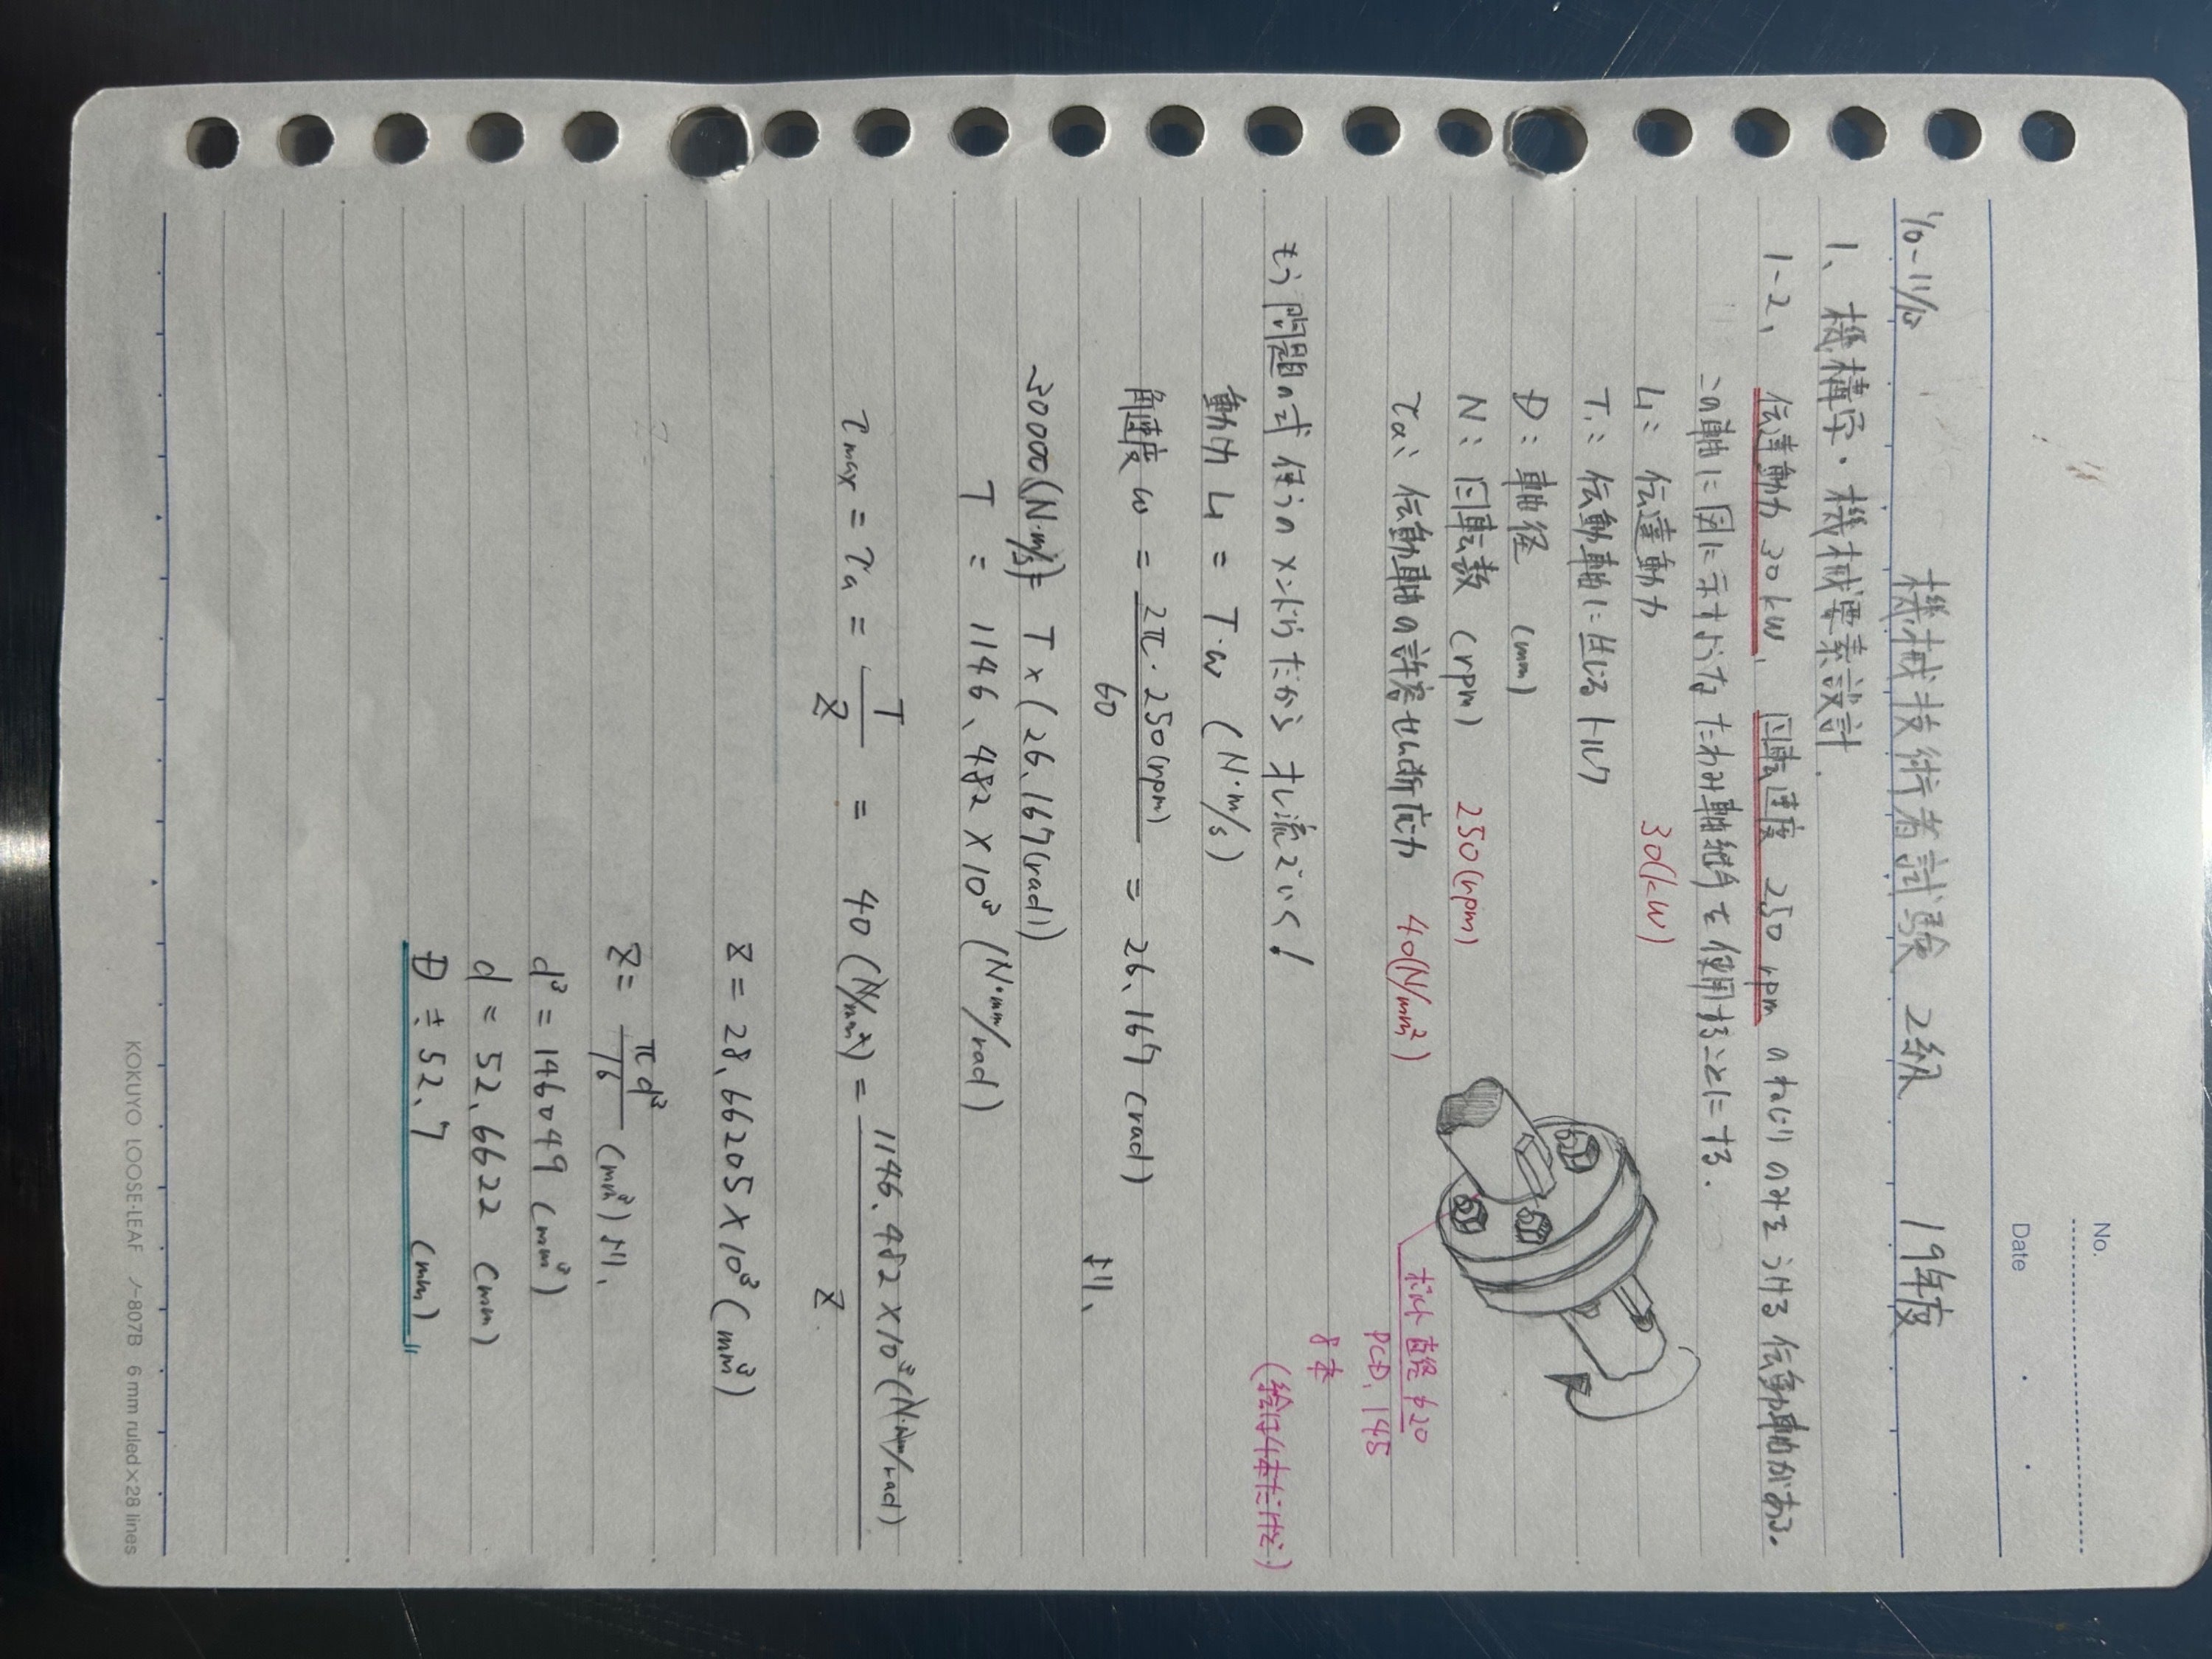 No.
Date
1/10-11/10 機械技術者試験 2級 19年度
1、機構学・機械要素設計.
1-2, 伝達動力 30kW, 回転速度 250 rpm のねじりのみをうける伝動軸がある.
この軸に図に示すようなたわみ軸継手を使用することにする.
L: 伝達動力 30(kW)
T: 伝動軸に生じるトルク
D: 軸径 (mm)
N: 回転数 (rpm) 250(rpm)
τa: 伝動軸の許容せん断応力 40(N/mm²)
ボルト直径 φ20
PCD. 145
8本
(絵は4本だけど)
もう問題の式使うのメンドウだからオレ流でいく!
動力 L = T・ω (N・m/s)
角速度 ω = 2π・250(rpm) / 60 = 26.167 (rad)
より、
30000(N・m/s) = T × (26.167(rad))
T = 1146.482 × 10³ (N・mm/rad)
τmax = τa = T / Z = 40 (N/mm²) = 1146.482 × 10³ (N・mm/rad) / Z
Z = 28.66205 × 10³ (mm³)
Z = πd³ / 16 (mm³) より、
d³ = 146049 (mm³)
d = 52.6622 (mm)
D ≒ 52.7 (mm)
KOKUYO LOOSE-LEAF ノ-807B 6 mm ruled×28 lines